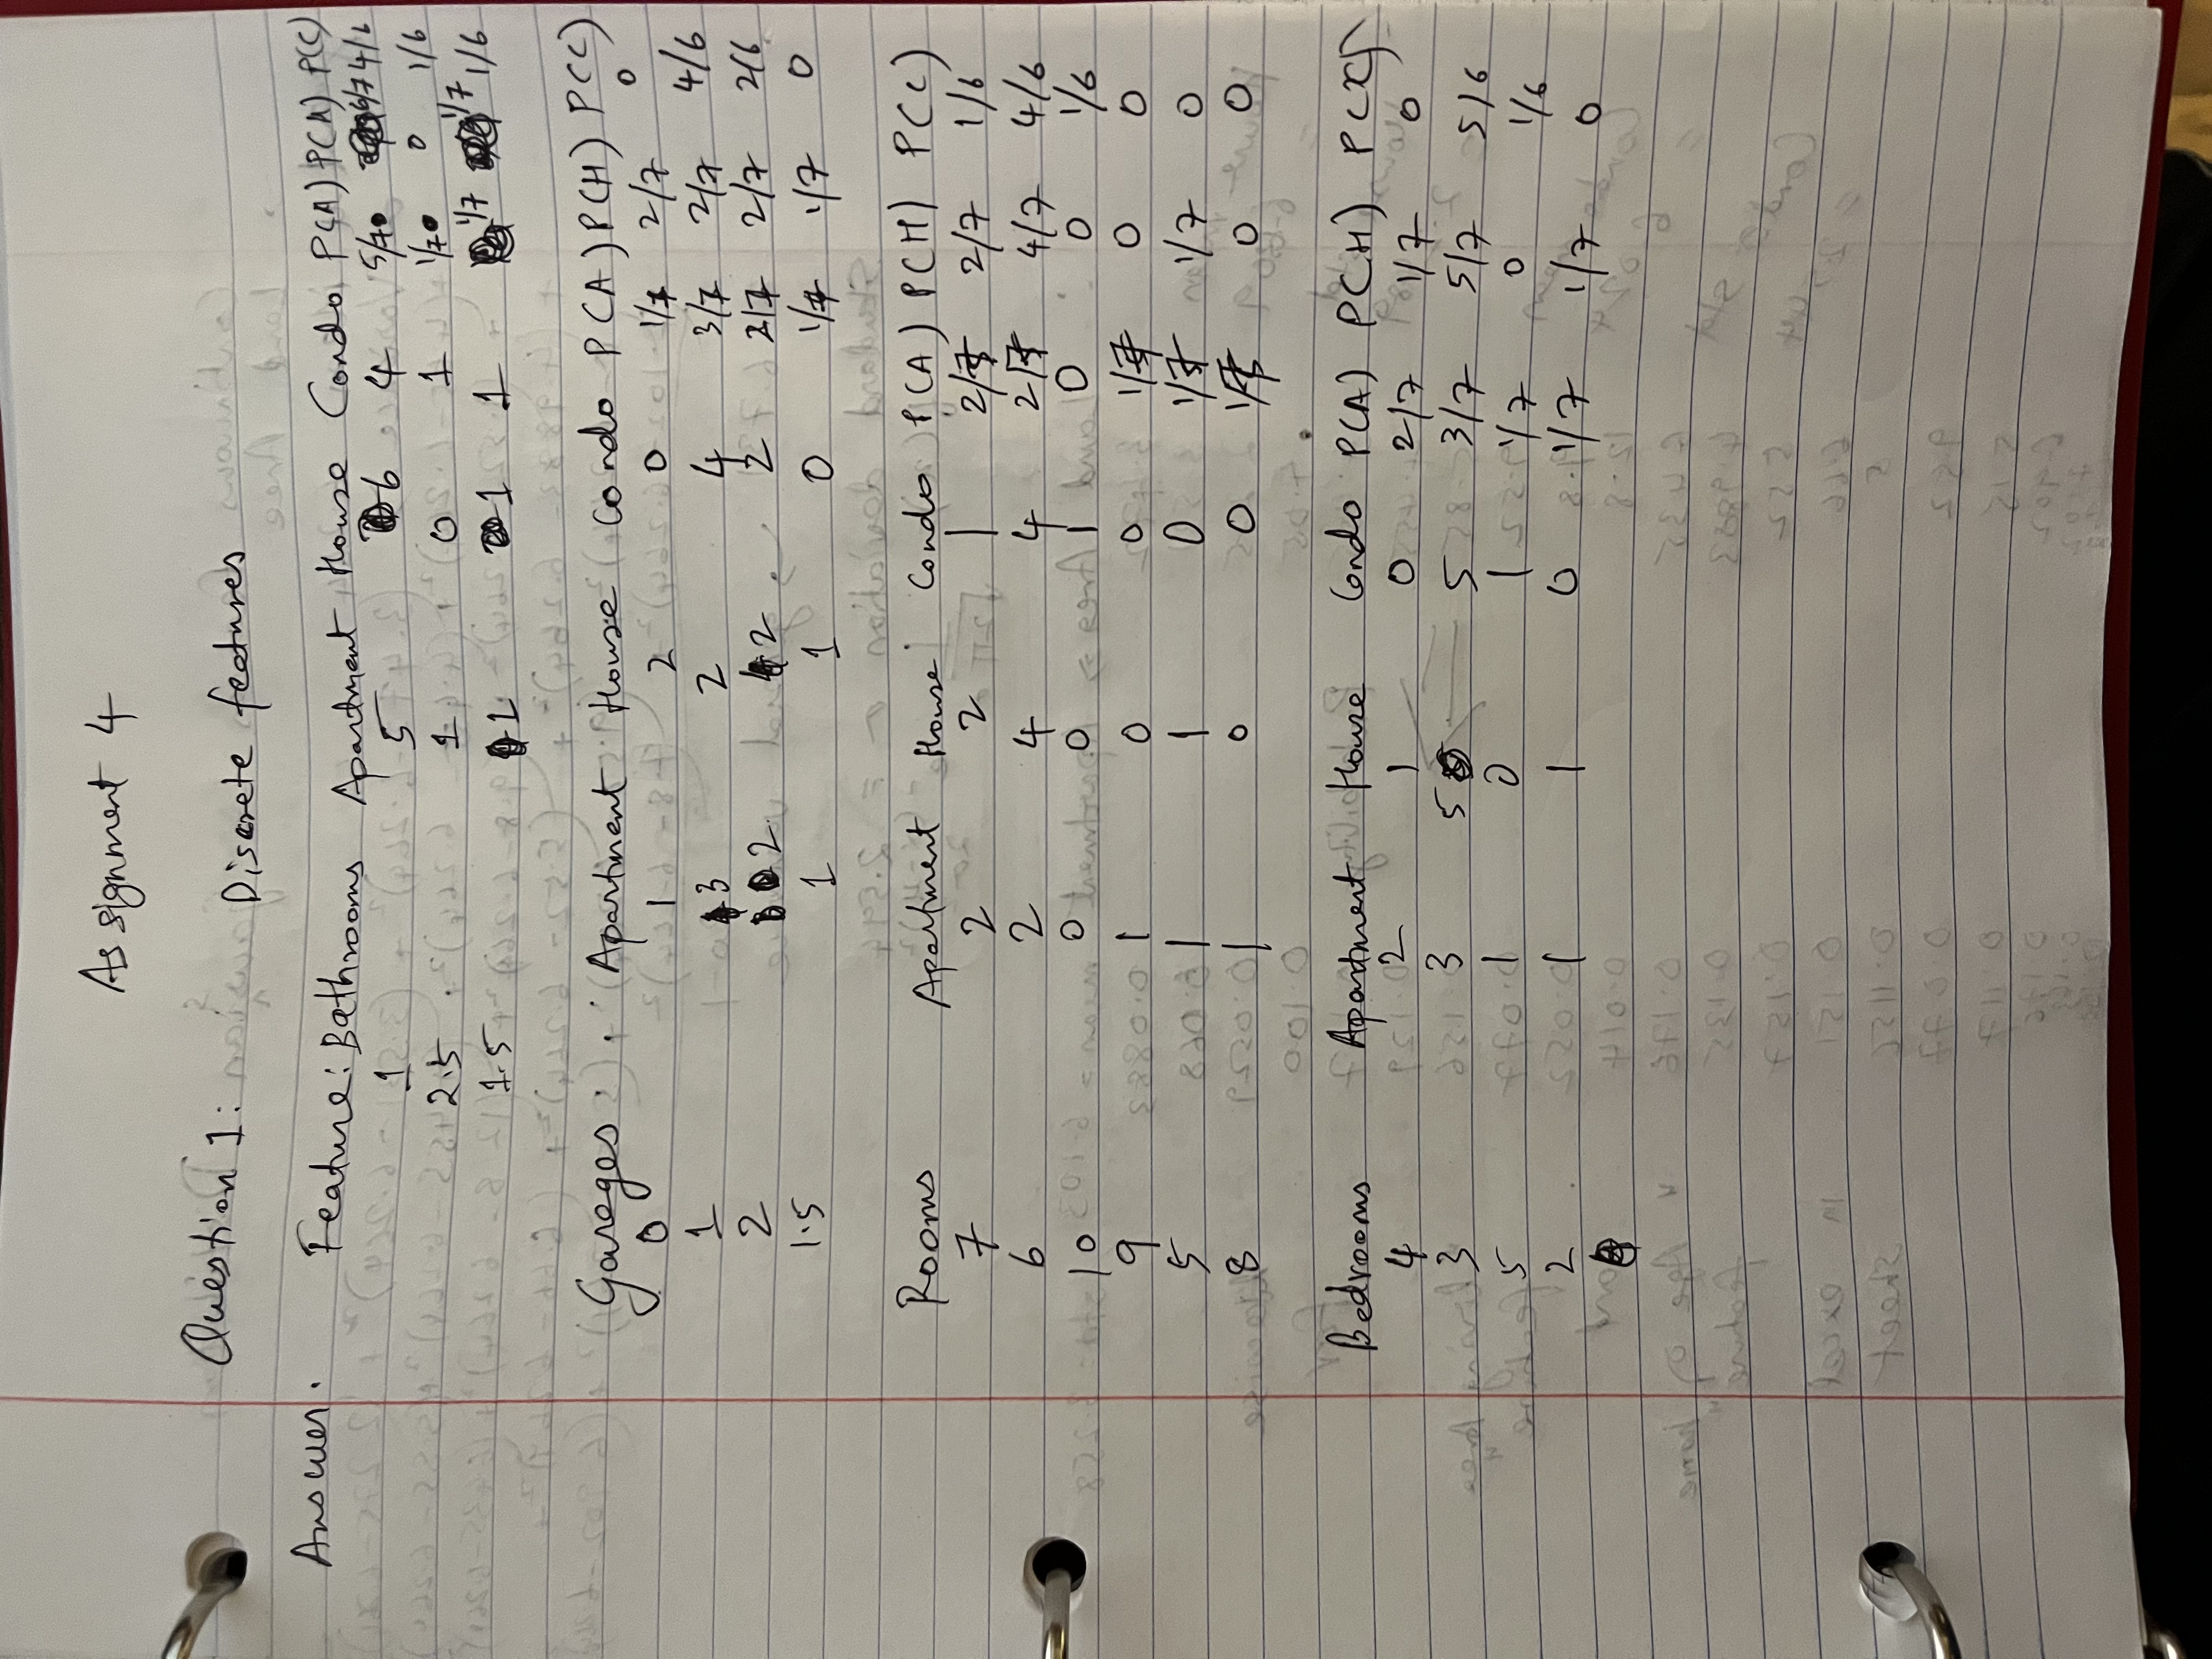 Assignment 4
Question 1:
Discrete features
Answer.
Feature: Bathrooms Apartment House Condo P(A) P(A) P(C)
1 5 6 4 5/7 6/7 4/6
2.5 1 0 1 1/7 0 1/6
1.5 1 1 1 1/7 1/7 1/6
Gareges Apartment House Condo P(A) P(H) P(C)
0 1 2 0 1/7 2/7 0
1 3 2 4 3/7 2/7 4/6
2 2 2 2 2/7 2/7 2/6
1.5 1 1 0 1/7 1/7 0
Rooms Apartment House Condo P(A) P(H) P(C)
7 2 2 1 2/7 2/7 1/6
6 2 4 4 2/7 4/7 4/6
10 0 0 1 0 0 1/6
9 1 0 0 1/7 0 0
5 1 1 0 1/7 1/7 0
8 1 0 0 1/7 0 0
Bedrooms Apartment House Condo P(A) P(H)
4 2 1 0 2/7 1/7 0
3 3 5 5 3/7 5/7 5/6
5 1 0 1 1/7 0 1/6
2 1 1 0 1/7 1/7 0